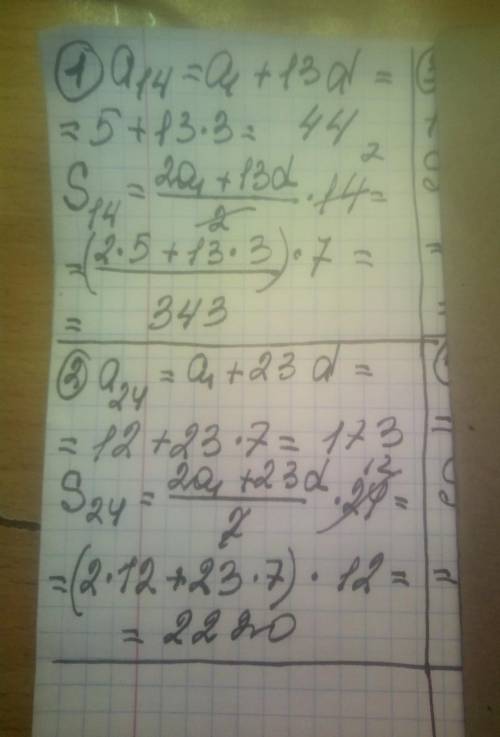 ① a₁₄ = a₁ + 13d =
= 5 + 13·3 = 44
S₁₄ = (2a₁ + 13d)/2 · 14 =
= (2·5 + 13·3)·7 =
= 343
② a₂₄ = a₁ + 23d =
= 12 + 23·7 = 173
S₂₄ = (2a₁ + 23d)/2 · 24 =
12
= (2·12 + 23·7) · 12 =
= 2220